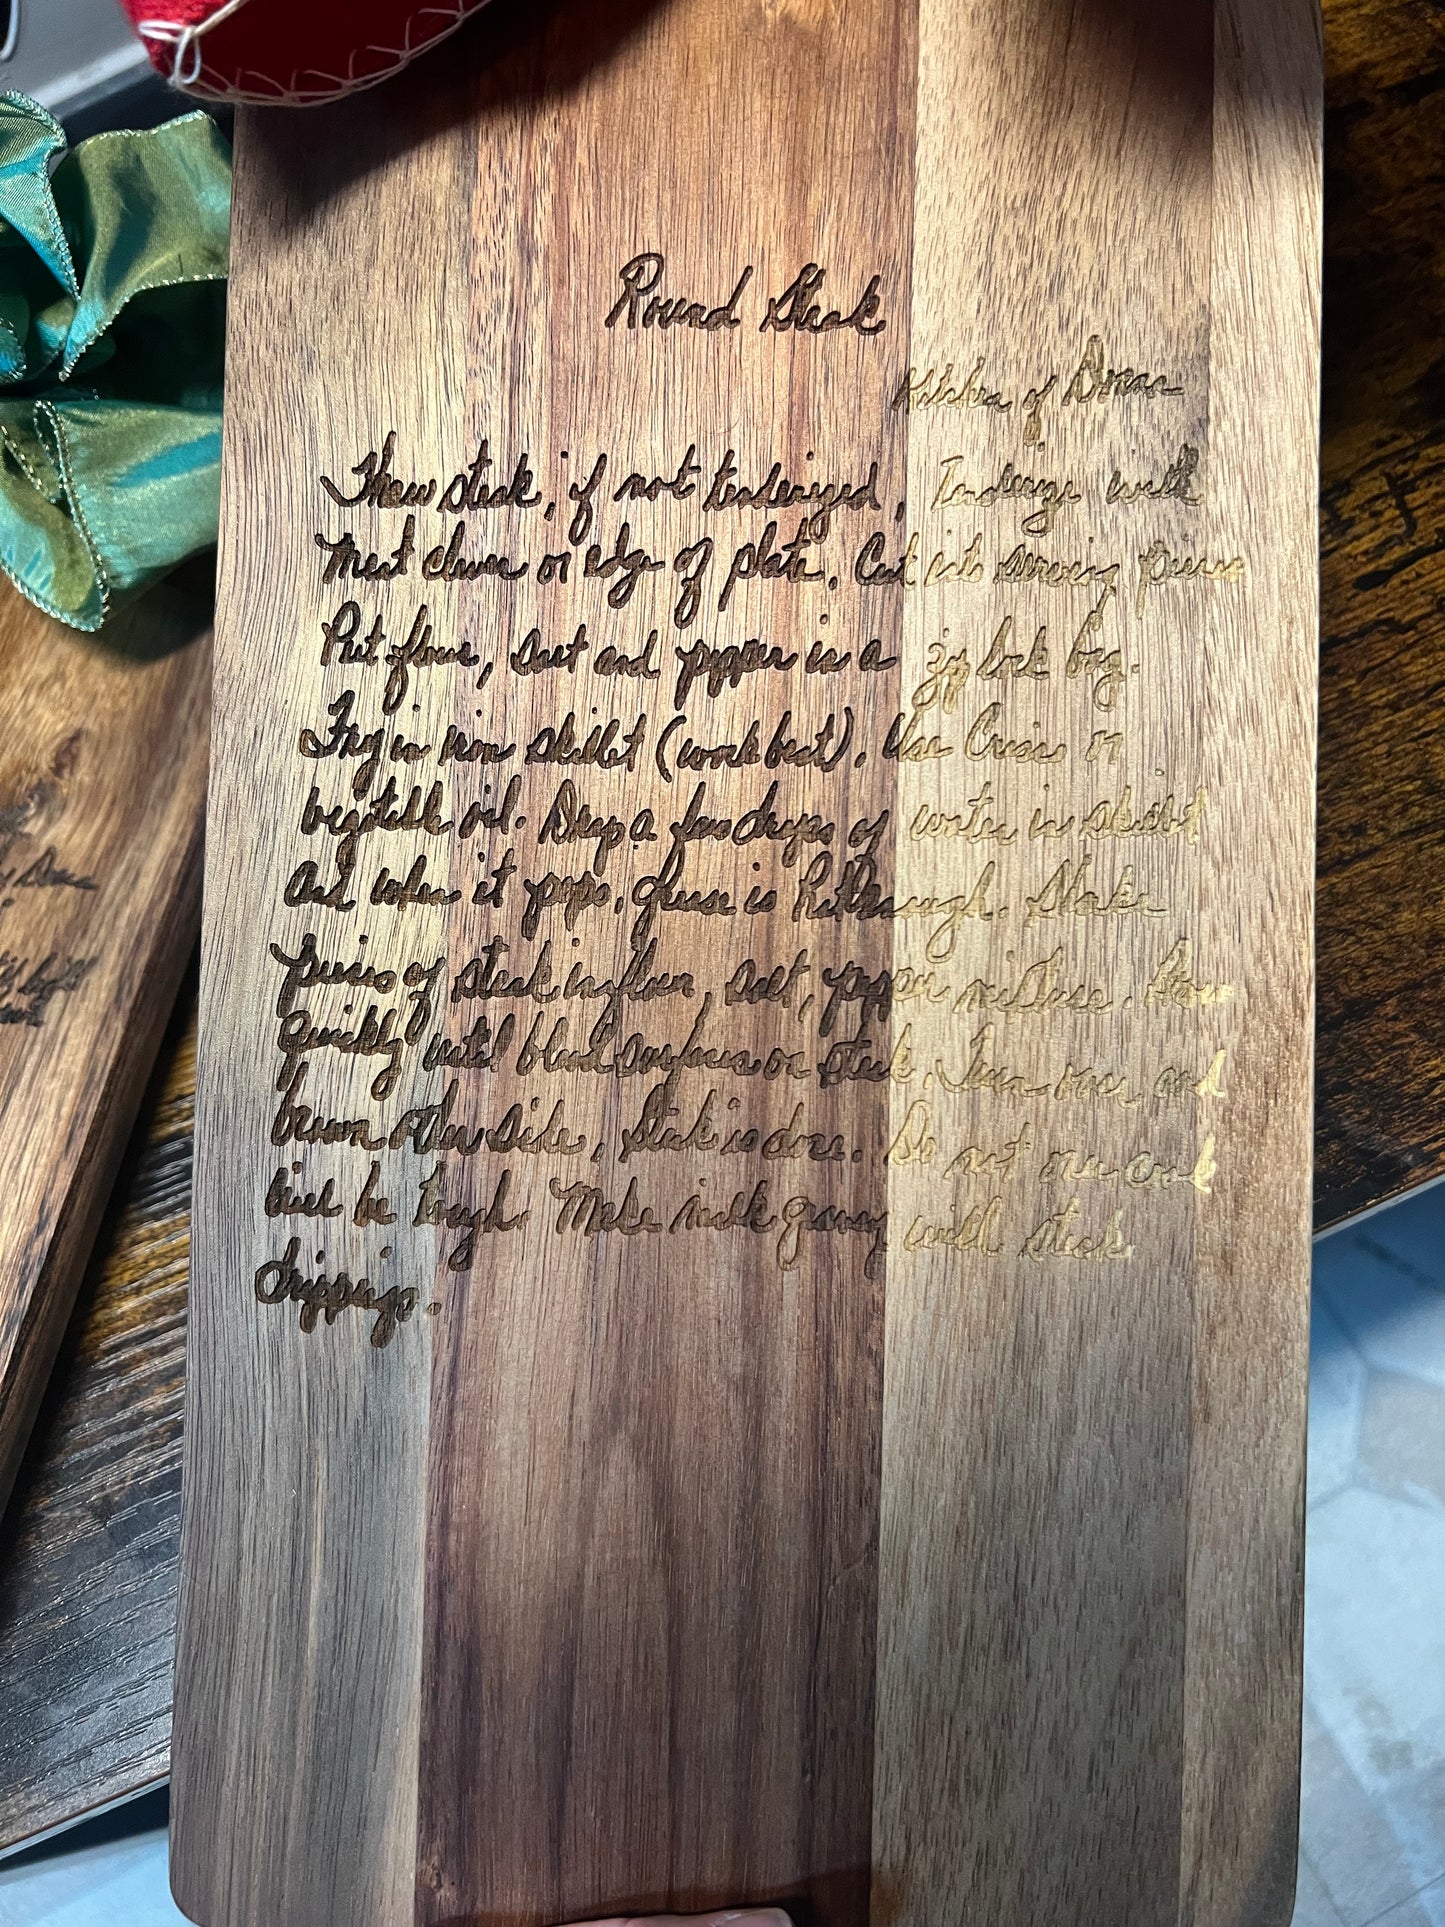 Round Steak
Kitchen of Donna
Thaw steak, if not tenderized, Tenderize with
meat cleaver or edge of plate. Cut into serving pieces
Put flour, salt and pepper in a zip lock bag.
Fry in iron skillet (works best). Use Crisco or
vegetable oil. Drop a few drops of water in skillet
and when it pops, grease is hot enough. Shake
pieces of steak in flour, salt, pepper mixture.
quickly until blood surfaces on steak. Turn over and
brown other side, Steak is done. Do not over cook
will be tough. Make milk gravy with steak
drippings.